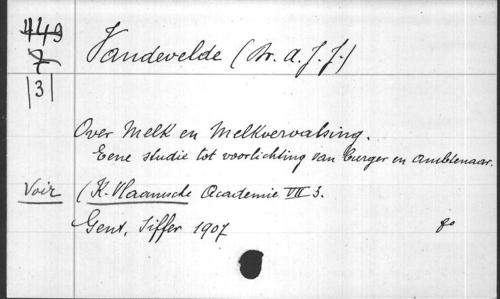 449
7
|3|
Vandevelde (Dr. A. J. J.)
Over Melk en Melkvervalsing.
Eene studie tot voorlichting van burger en ambtenaar.
Voir (K. Vlaamsche Academie VII 3.
Gent, Siffer 1907 8º